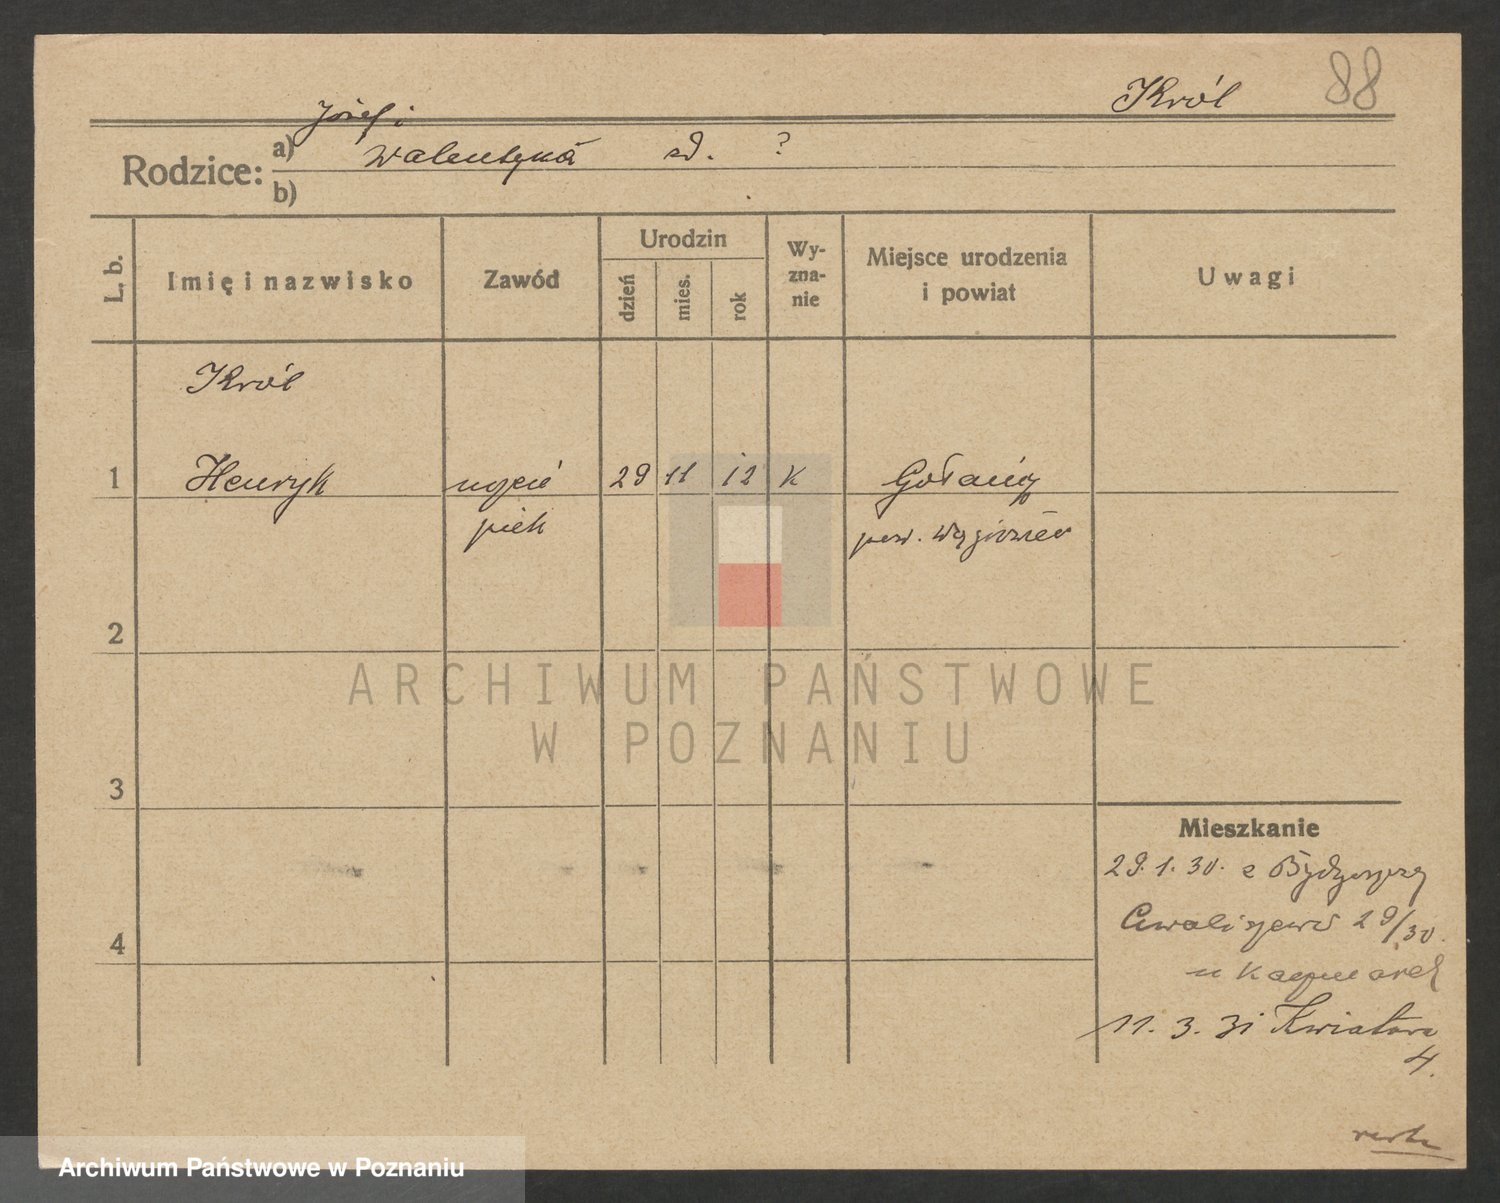 Król 88
Józef i
Rodzice: a) Walentyna zd. ?
b)
L. b. Imię i nazwisko Zawód Urodzin dzień mies. rok Wy-zna-nie Miejsce urodzenia i powiat Uwagi
Król
1 Henryk uczeń 29 11 12 K Gołańcz
piek pow. Wągrowiec
2
ARCHIWUM PAŃSTWOWE
W POZNANIU
3
Mieszkanie
29.1.30. z Bydgoszczy
4 Chwaliszewo 29/30.
u Kaczmarek
11.3.31 Kwiatowa
4.
Archiwum Państwowe w Poznaniu